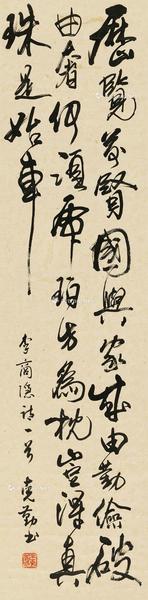 歷覽前賢國與家成由勤儉破
由奢何須虎珀方為枕豈得真
珠是始車
李商隱詩一首 勤書